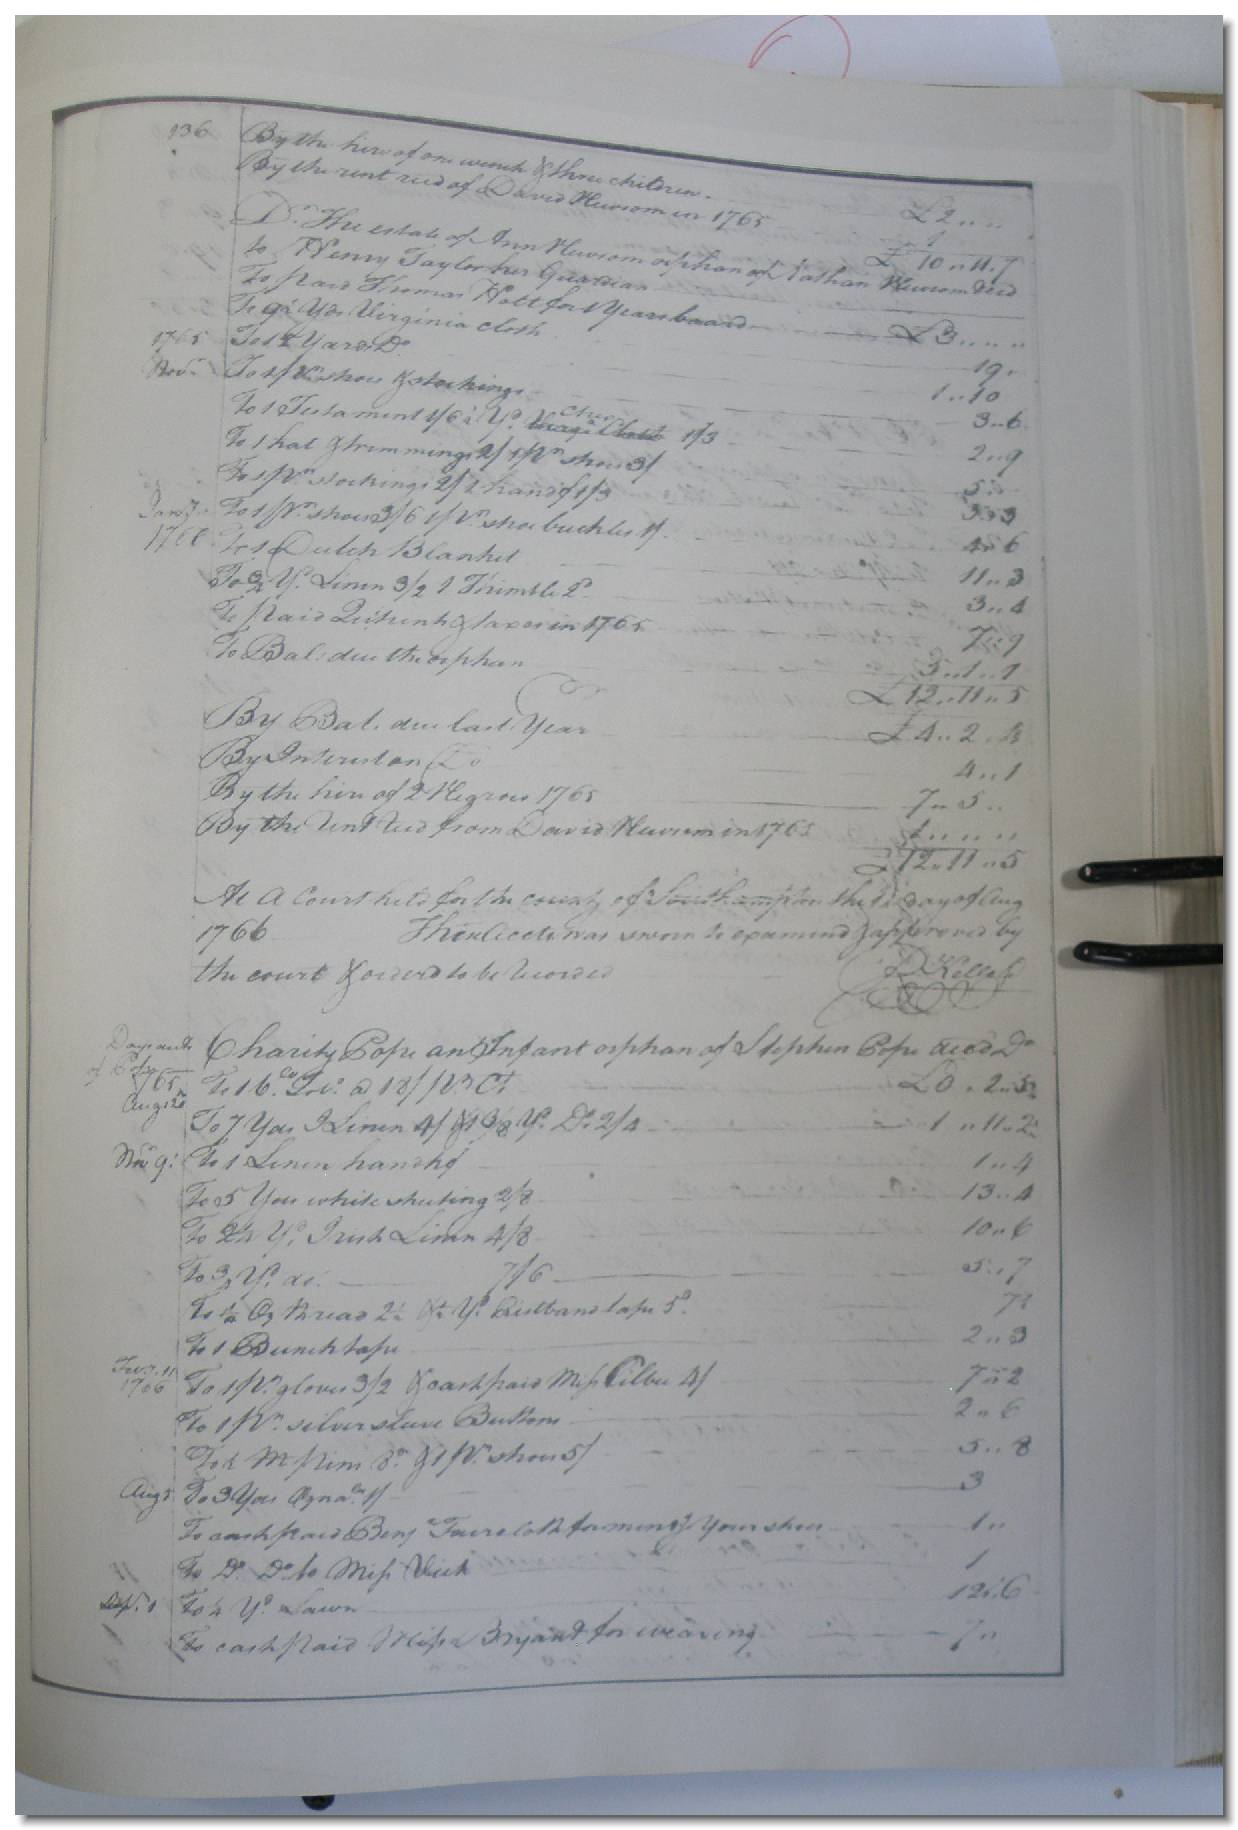 136
By the hire of one wench & three children. £2 .. ..
By the rent recd of David Newsom in 1765 1
£10 .. 11 . 7
Dr. The estate of Ann Newsom orphan of Nathan Newsom decd
to Henry Taylor her Guardian
To paid Thomas Holt for 1 Years board £3 .. ..
To 9½ Yds Virginia cloth 19 .
1765 To 12 Yards Do. 1 .. 10
Novr. To 1 pr. shoes & stockings 3 .. 6
To 1 Testament 1/6 ½ Yd. Check 1/3 2 .. 9
To 1 hat & trimmings 2/ 1 pr. shoes 3/ 5 ..
To 1 pr. stockings 2/ 1 handf 1/3 3 .. 3
Jany. To 1 pr. shoes 3/6 1 pr. shoe buckles 1/. 4 .. 6
1766 To 1 Dutch Blanket 11 .. 3
To ¾ Yd. Linen 3/2 1 Thimble 2d. 3 .. 4
To paid Quitrents & taxes in 1765 7 .. 9
To Bal. due the orphan 5 .. 1 .. 1
£12 .. 11 .. 5
By Bal. due last Year £4 .. 2 . 4
By Interest on Do 4 .. 1
By the hire of 2 Negroes 1765 7 .. 5 ..
By the rent recd from David Newsom in 1765 1 .. .. ..
£12 .. 11 .. 5
At A Court held for the county of Southampton the day of Aug
1766 This Acct. was sworn to examined & approved by
the court & ordered to be recorded
R Kello
of Pope Charity Pope an Infant orphan of Stephen Pope decd Dr
1765 To 16. @ 18/ pr Ct £0 . 2 .. 5
Aug: 20 To 7 Yds Linen 4/ & 1 3/8 Yd. Do. 2/4 1 .. 11 .. 2
Novr 9: To 1 Linen handkf 1 .. 4
To 5 Yds white sheeting 2/8 13 .. 4
To 2¼ Yd. Irish Linen 4/8 10 .. 6
To ¾ Yd. do. 7/6 5 .. 7
To ¼ Oz thread 2½ & ½ Yd tape 5d. 7½
To 1 Bunch tape 2 .. 3
1766 To 1 pr. gloves 3/2 & cash paid Miss 4/ 7 .. 2
To 1 pr. silver sleeve Buttons 2 .. 6
To ½ M pins 8d. & 1 pr. shoes 5/ 5 .. 8
Aug 5 To 3 Yds 1/ 3
To cash paid Benja. Faircloth for mendg Your shoes 1 ..
To Do. Do to Miss Vick 1
Sepr. 1 To Yd. Lawn 12 .. 6
To cash paid Bryant for weaving 7 ..